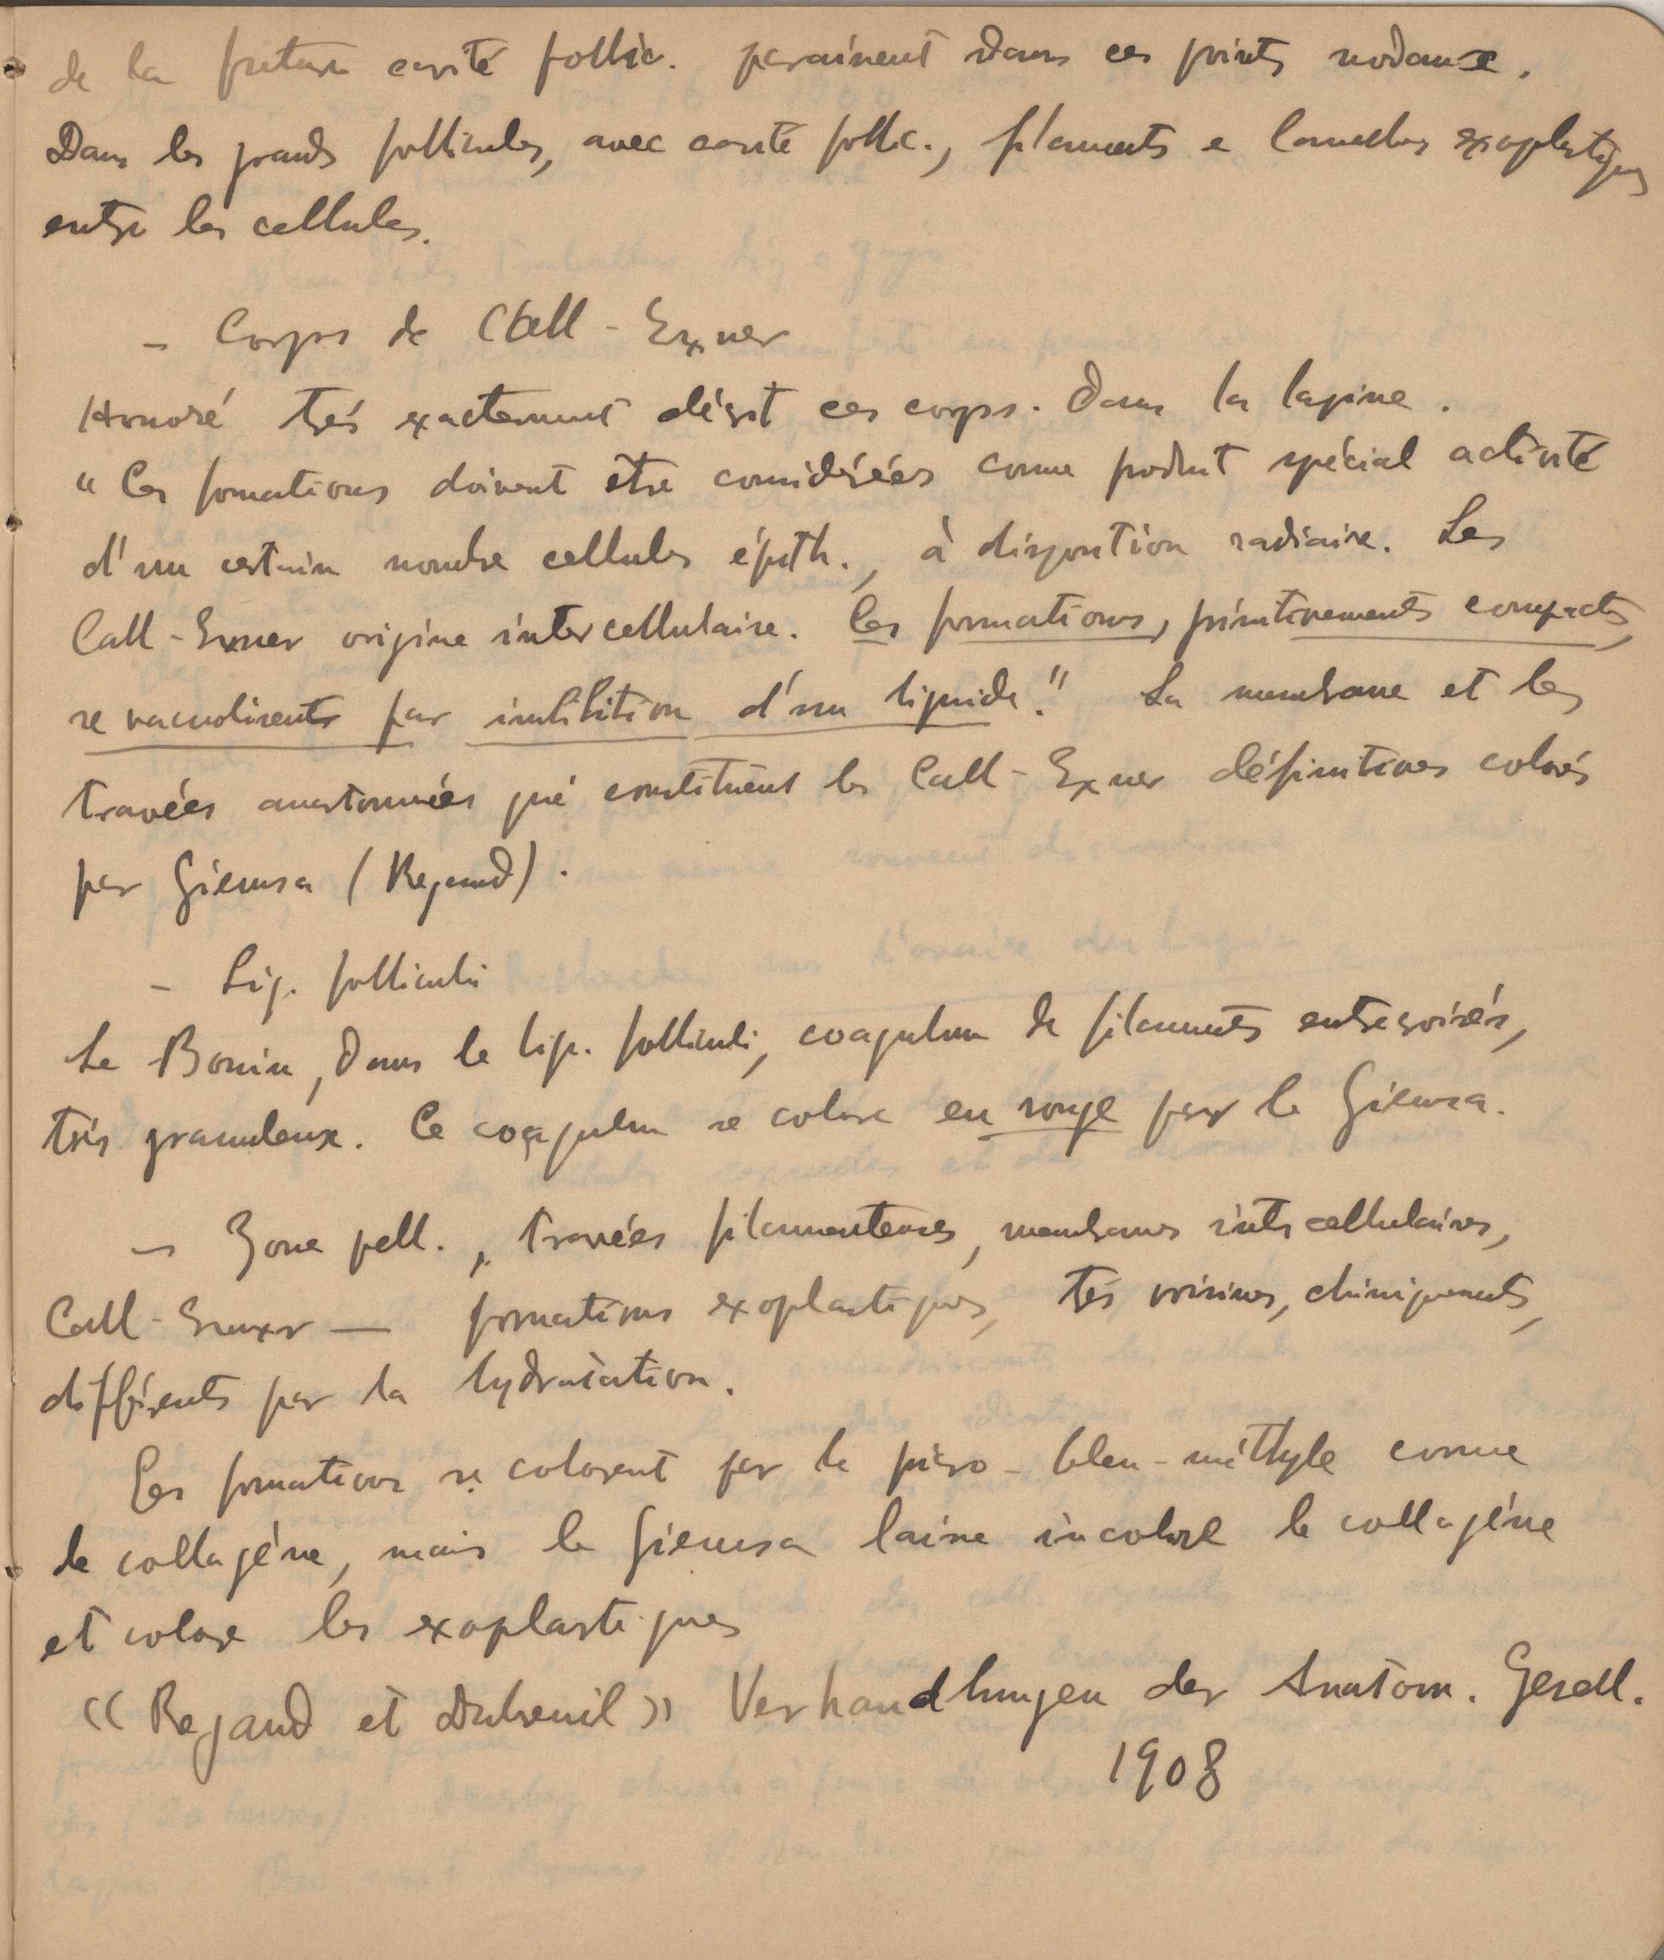 de la future cavité follic. paraissent dans ces points nodaux.
Dans les grands follicules, avec cavité follic., filaments e lamelles exoplastiques
entre les cellules.
- Corps de Call - Exner
Honoré trés exactement décrit ces corps. Dans la lapine.
" Ces formations doivent être considérées comme produt spécial activité
d'un certain nombre cellules épith., à disposition radiaire. Les
Call - Exner origine intercellulaire. Ces formations, primitivements compacts,
se vacuolisents par imbibition d'un liquide." La membrane et les
travées anastomosées qui constituent les Call - Exner définitives colorés
par Giemsa (Regaud).
- Liq. folliculi
Le Bouin, dans le liq. folliculi, coagulum de filaments entrecroisés,
trés granuleux. Ce coagulum se colore en rouge par le Giemsa.
- Zone pell., travées filamenteuses, membranes intercellulaires,
Call - Exner — formations exoplastiques, trés voisines, chimiquements,
différents par la hydratation.
Ces formations se colorent par le picro - bleu - méthyle comme
le collagéne, mais le Giemsa laisse incolore le collagéne
et colore les exoplastiques
(( Regaud et Dubreuil )) Verhandlungen der Anatom. Gesell.
1908